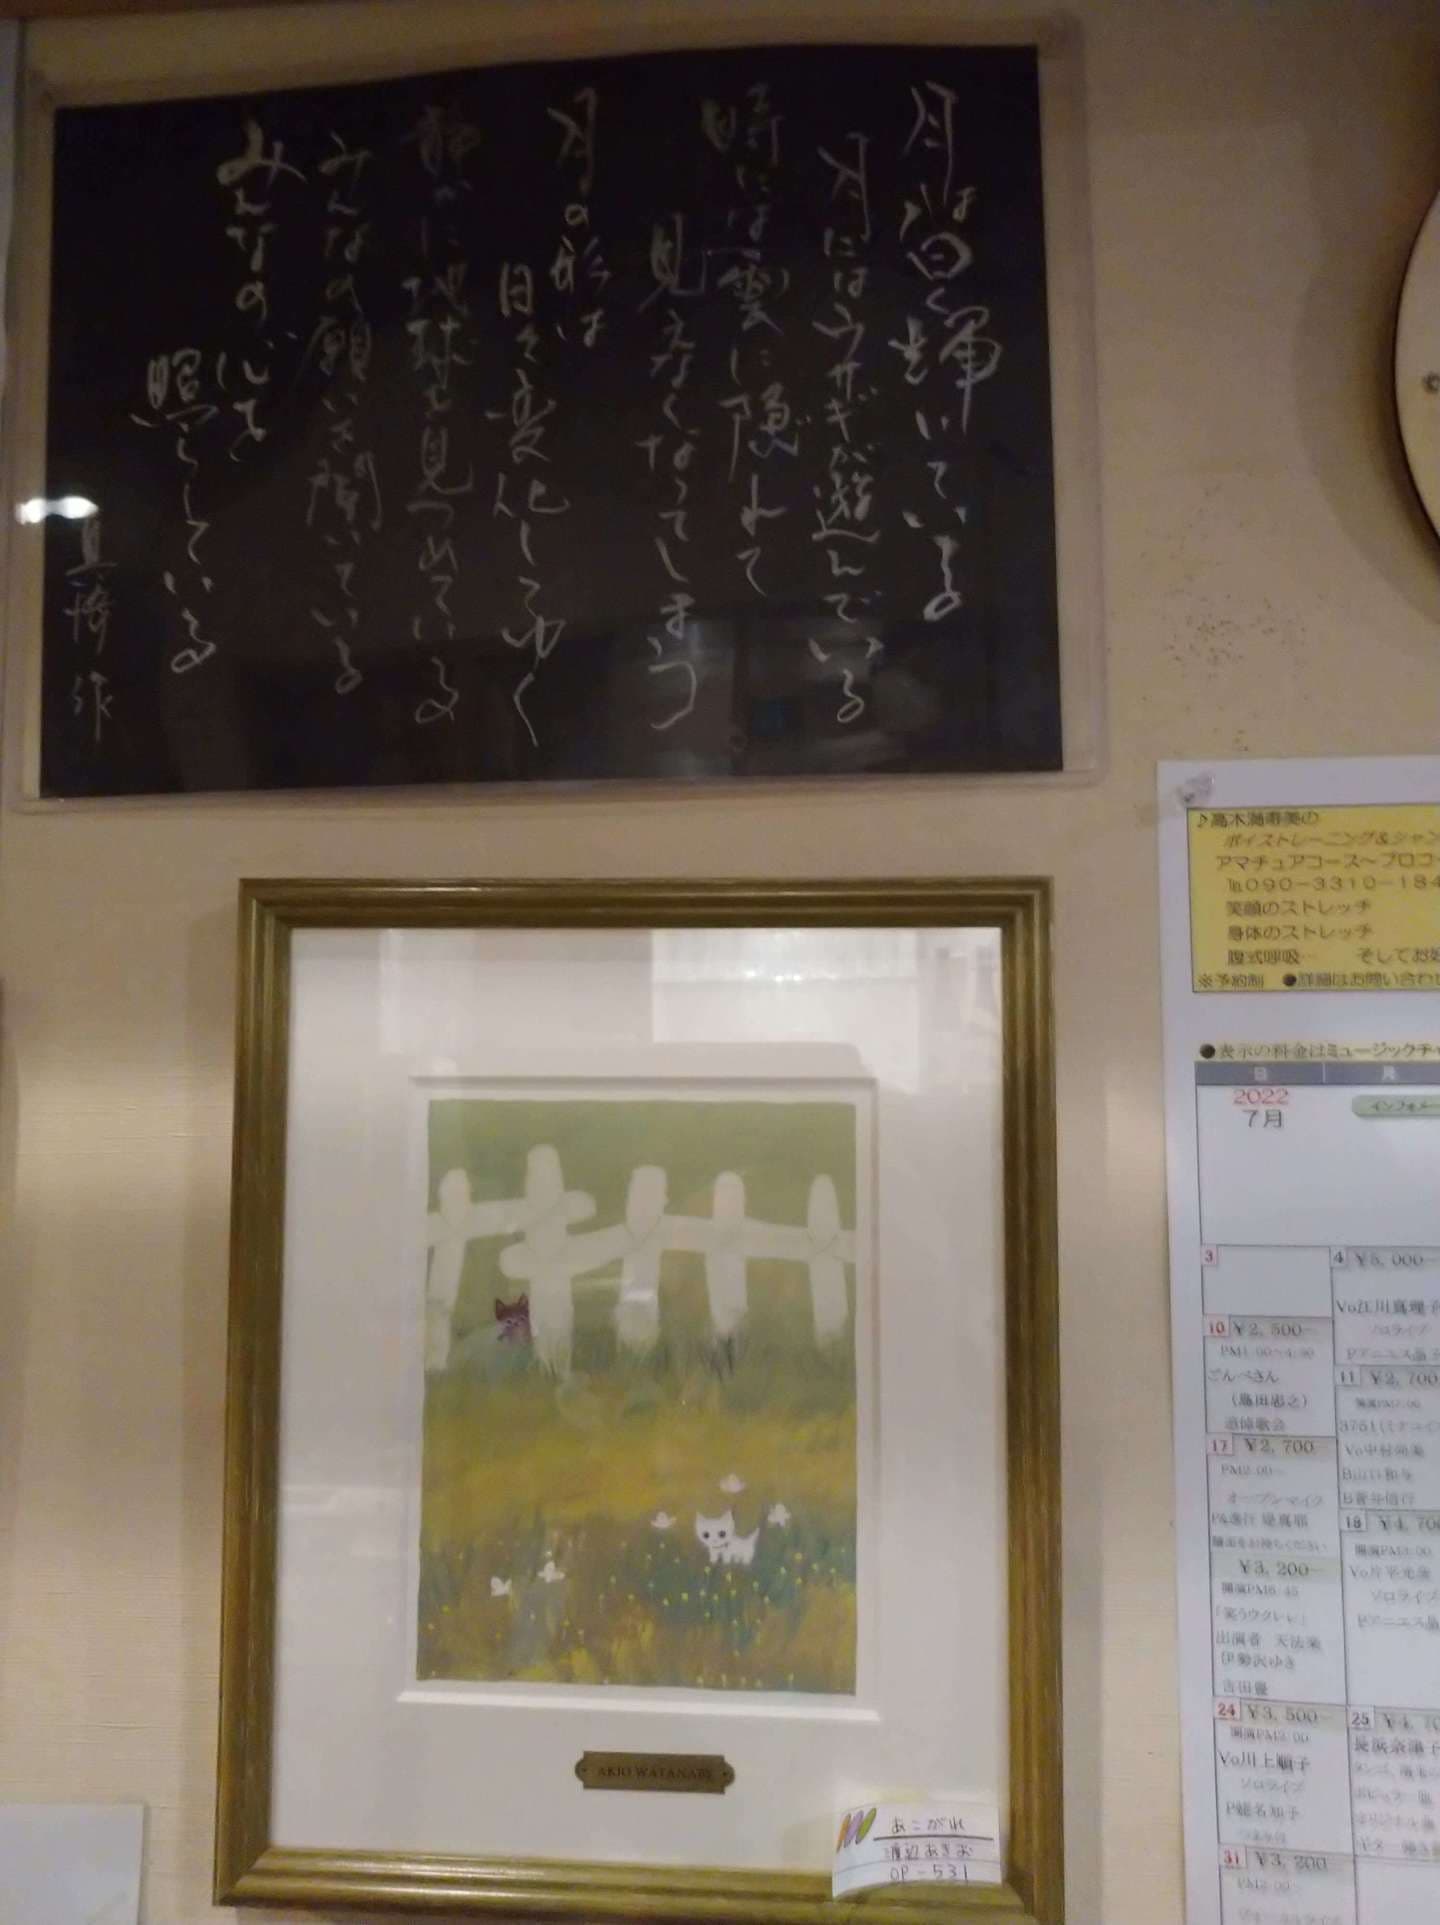 月は白く輝いている
月にはウサギが遊んでいる
時には雲に隠れて
見えなくなってしまう
月の形は
日々変化してゆく
静かに地球を見つめている
みんなの願いを聞いている
みんなの心を
照らしている
作
♪高木満寿美の
ボイストレーニング&シャン
アマチュアコース〜プロコー
℡090-3310-184
笑顔のストレッチ
身体のストレッチ
腹式呼吸… そしてお好
※予約制 ●詳細はお問い合わせ
●表示の料金はミュージックチャ
日 月
2022
7月
インフォメー
3
4 ¥5,000-
Vo江川真理子
ソロライブ
Pアニエス晶子
10 ¥2,500-
PM1:00〜4:30
ごんべさん
(島田忠之)
追悼歌会
11 ¥2,700
開演PM7:00
17 ¥2,700
PM2:00〜
オープンマイク
¥3,200-
開演PM6:45
「笑うウクレレ」
出演者
伊勢沢ゆき
吉田
18 ¥4,700
ソロライブ
Pアニエス晶
24 ¥3,500-
開演PM2:00
Vo川上順子
ソロライブ
P蛯名知子
25 ¥4,70
31 ¥3,200
PM2:00〜
AKIO WATANABE
あこがれ
渡辺あきお
OP-531